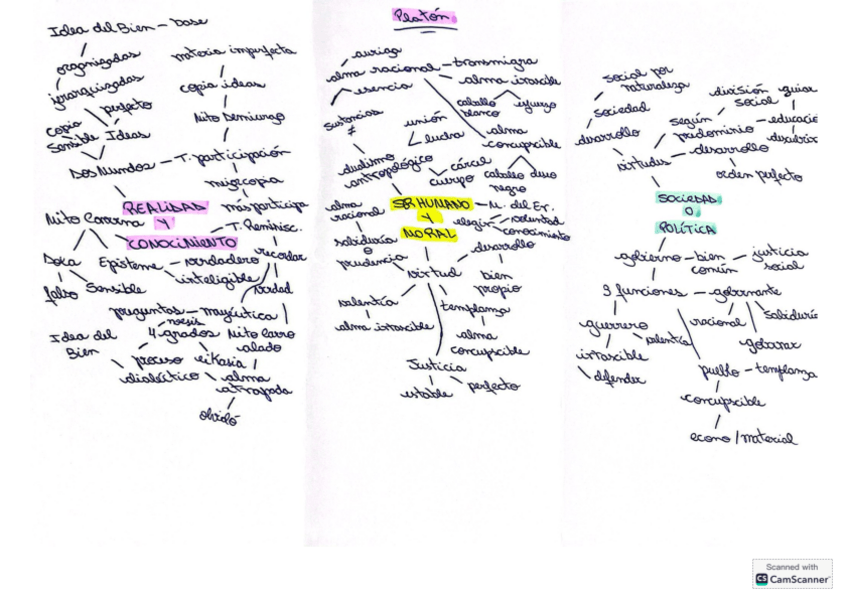 Platón.
Idea del Bien - base
organizadas
jerarquizadas
copia
perfecto
sensible
Ideas
Dos Mundos - T. participación
materia imperfecta
copia ideas
Mito Demiurgo
mejor copia
más participa
REALIDAD
Y
CONOCIMIENTO
Mito Caverna
Doxa
falso
Sensible
Episteme - verdadero
inteligible
T. Reminisc.
recordar
verdad
preguntas - mayéutica
noesis
4 grados
Idea del
Bien
proceso
dialéctico
eikasia
Mito carro
alado
alma
atrapada
olvidó
auriga
alma racional - transmigra
esencia
alma irascible
caballo
blanco
alma
concupiscible
caballo
negro
sustancias
≠
unión
lucha
dualismo
antropológico
cárcel
cuerpo
SER HUMANO
Y
MORAL
M. del Er.
elegir
voluntad
conocimiento
alma
racional
sabiduría
o
prudencia
virtud
desarrollo
bien
propio
valentía
alma irascible
templanza
alma
concupiscible
Justicia
estable
perfecto
social por
naturaleza
sociedad
desarrollo
virtudes
según
predominio
división
social
guiar
desarrollo
orden perfecto
SOCIEDAD
O
POLÍTICA
gobierno - bien
común
justicia
social
3 funciones - gobernante
guerrero
irascible
defender
valentía
racional
gobernar
pueblo - templanza
concupiscible
econo/material
Scanned with
CS CamScanner